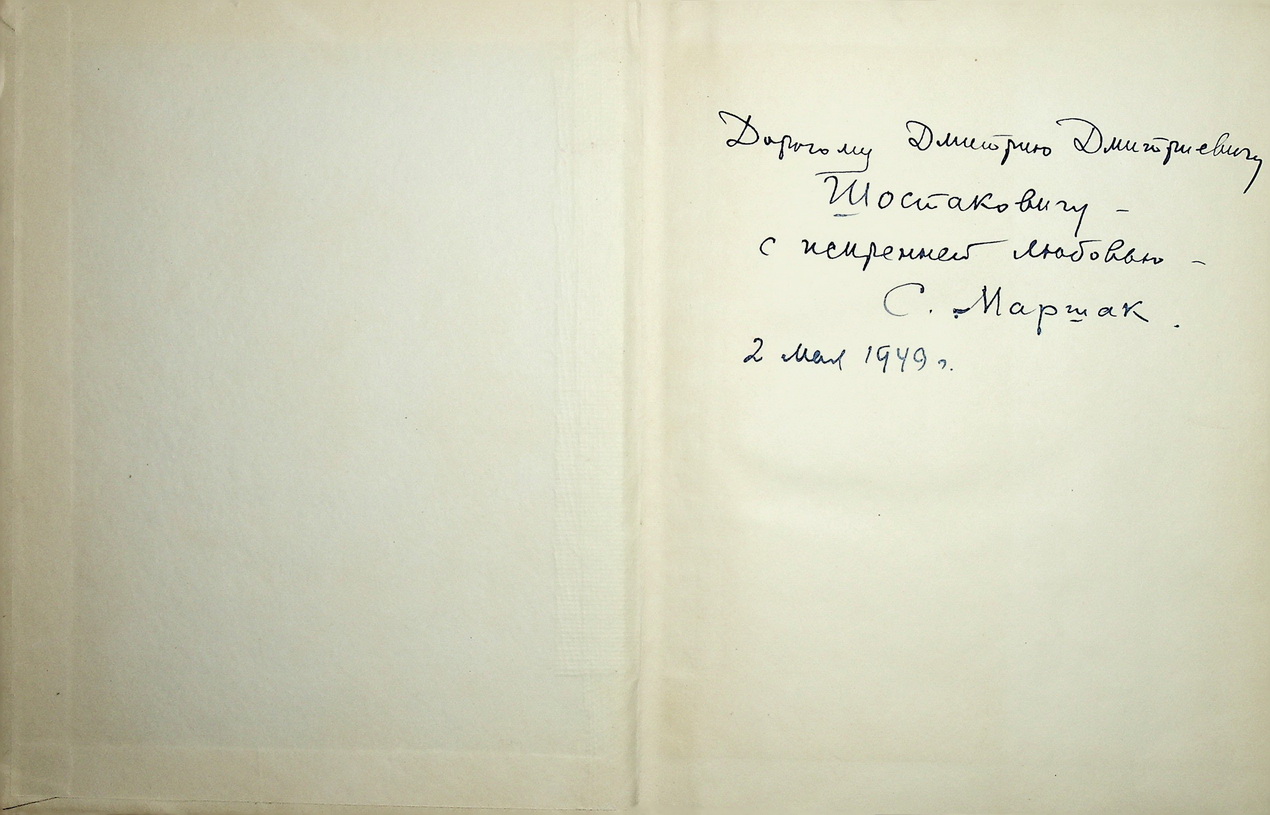 Дорогому Дмитрию Дмитриевичу
Шостаковичу –
с искренней любовью –
С. Маршак.
2 мая 1949 г.